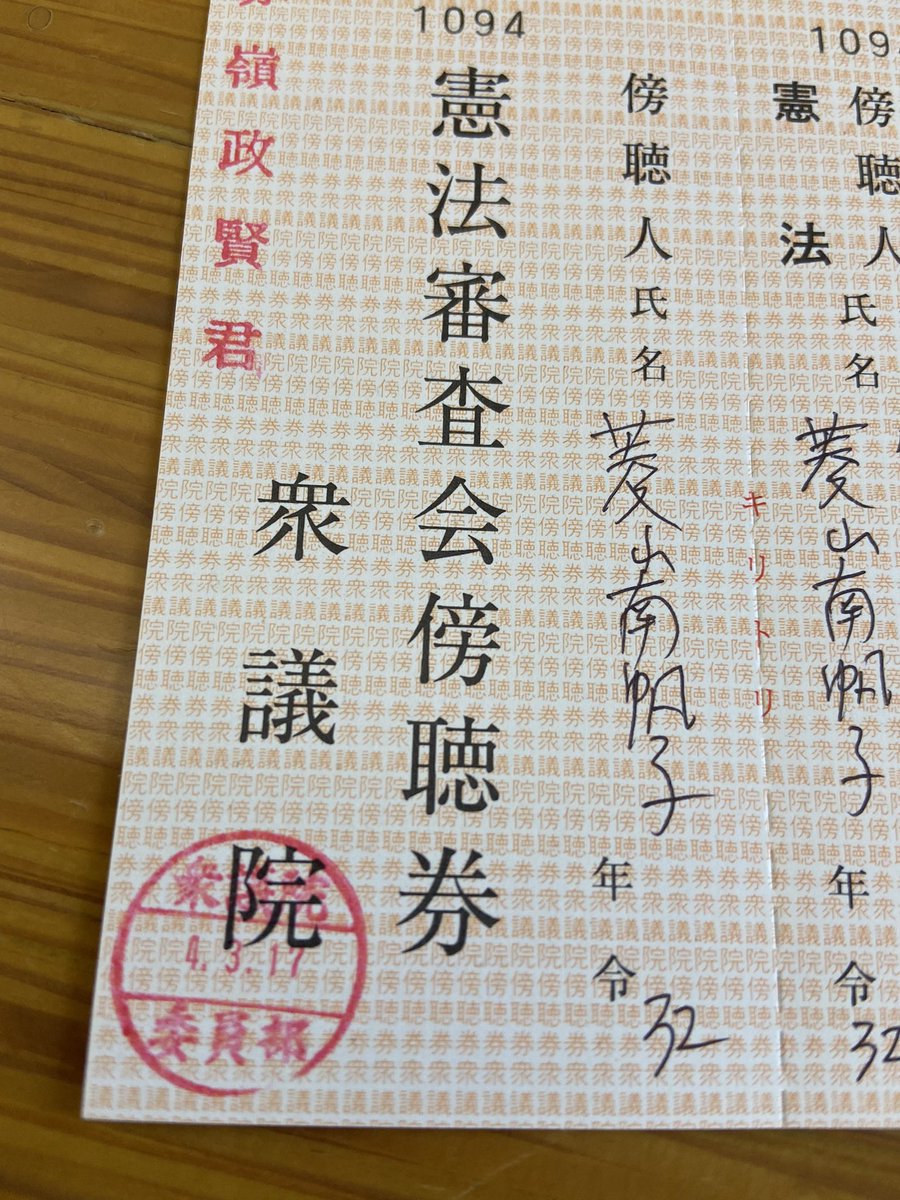 1094
憲法
傍聴人氏名 菱山南帆子 年令 32
キリトリ
1094
傍聴人氏名 菱山南帆子 年令 32
憲法審査会傍聴券
衆議院
嶺政賢君
4.3.17
委員部